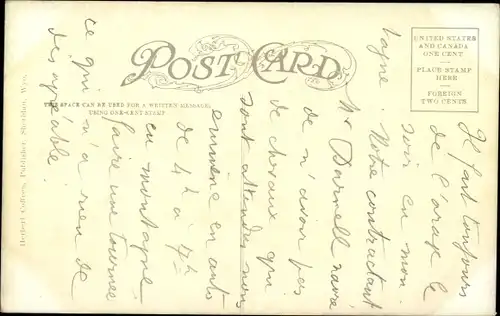 POST CARD
THIS SPACE CAN BE USED FOR A WRITTEN MESSAGE,
USING ONE-CENT STAMP
UNITED STATES
AND CANADA
ONE CENT
PLACE STAMP
HERE
FOREIGN
TWO CENTS
Herbert Coffeen, Publisher, Sheridan, Wyo.
Il faut toujours
de l'orage le
soir en mon
tagne. Notre contractant
Mr Darnell navré
de n'avoir pas
de chevaux qui
sont attendus nous
emmène en auto
de 4h à 7h
en montagne
faire une tournée
ce qui n'a rien de
désagréable.